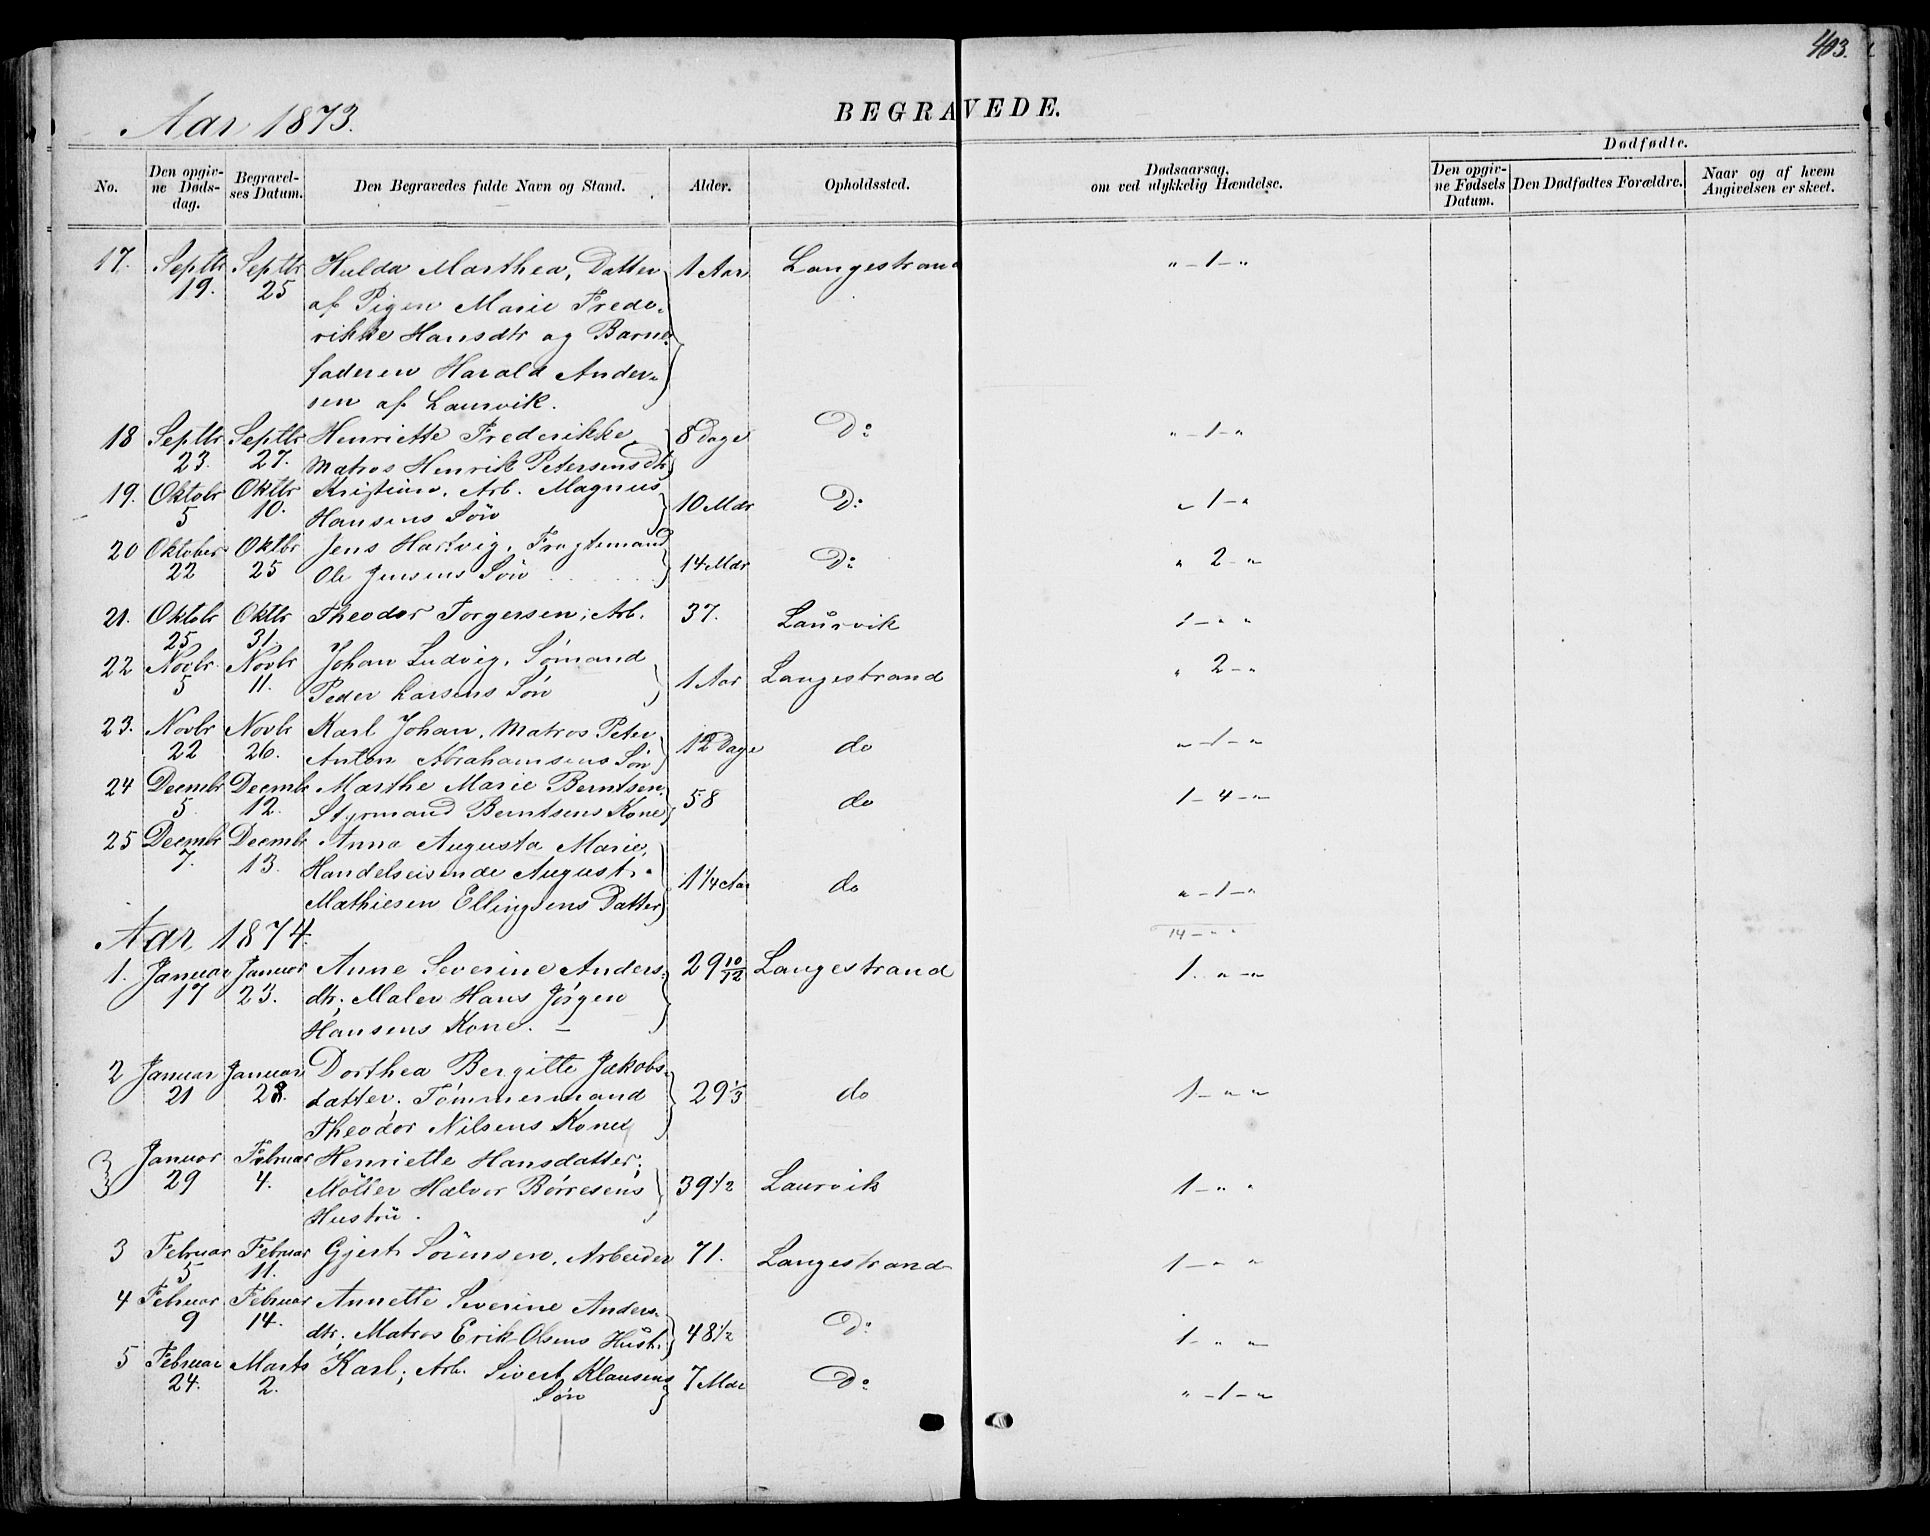 403.
Aar 1873.
BEGRAVEDE.
No.
Den opgiv-
ne Døds-
dag.
Begravel-
ses Datum.
Den Begravedes fulde Navn og Stand.
Alder.
Opholdssted.
Dødsaarsag,
om ved ulykkelig Hændelse.
Dødfødte.
Den opgiv-
ne Fødsels
Datum.
Den Dødfødtes Forældre.
Naar og af hvem
Angivelsen er skeet.
17. Septbr Septbr Hulda Marthea, Datter 1 Aar Langestrand " - 1 - "
19. 25 af Pigen Marie Frede-
rikke Hansdtr og Barne-
faderen Harald Ander-
sen af Laurvik.
18 Septbr Septbr Henriette Frederikke, 8 Dage Do " - 1 - "
23. 27. Matros Henrik Petersens dtr
19. Oktobr Oktbr Kristian, Arb. Magnus 10 Mdr Do " 1 - "
5 10. Hansens Søn
20 Oktober Oktbr Jens Hartvig, Fragtemand 14 Mdr Do " 2 - "
22 25 Ole Jensens Søn
21. Oktobr Oktbr Theodor Torgersen, Arb. 37. Laurvik 1 - " "
25 31.
22 Novbr. Novbr Johan Ludvig, Sømand 1 Aar Langestrand " 2 - "
5 11. Peder Larsens Søn
23. Novbr Novbr Karl Johan, Matros Peter 12 Dage do " - 1 - "
22 26. Anton Abrahamsens Søn
24 Decmbr Decmbr Marthe Marie Berntsen, 58 do 1 - 4 - "
5 12. Styrmand Berntsens Kone
25 Decmbr Decmbr Anna Augusta Marie, 1 1/4 Aar do " - 1 - "
7. 13. Handelseivende August
Mathiesen Ellingsens Datter
Aar 1874. 14 - " "
1. Januar Januar Anne Severine Anders- 29 10/12 Langestrand 1. " - "
17 23. dtr, Maler Hans Jørgen
Hansens Kone. -
2 Januar Januar Dorthea Bergitte Jakobs- 29 1/3 do 1 - " "
21 28. datter, Tømmermand
Theodor Nilsens Kone
Januar Februar Henriette Hansdatter; 39 1/2 Laurvik 1 - " "
29 4. Møller Halvor Børresens
Hustru.
3 Februar Februar Gjert Sørensen, Arbeider 71. Langestrand 1 - " "
5 11.
4 Februar Februar Annette Severine Anders- 48 1/2 Do 1 - " "
9 14. dtr, Matros Erik Olsens Hust.
5 Februar Marts Karl, Arb. Sivert Klausens 7 Mdr Do " - 1 - "
24. 2. Søn